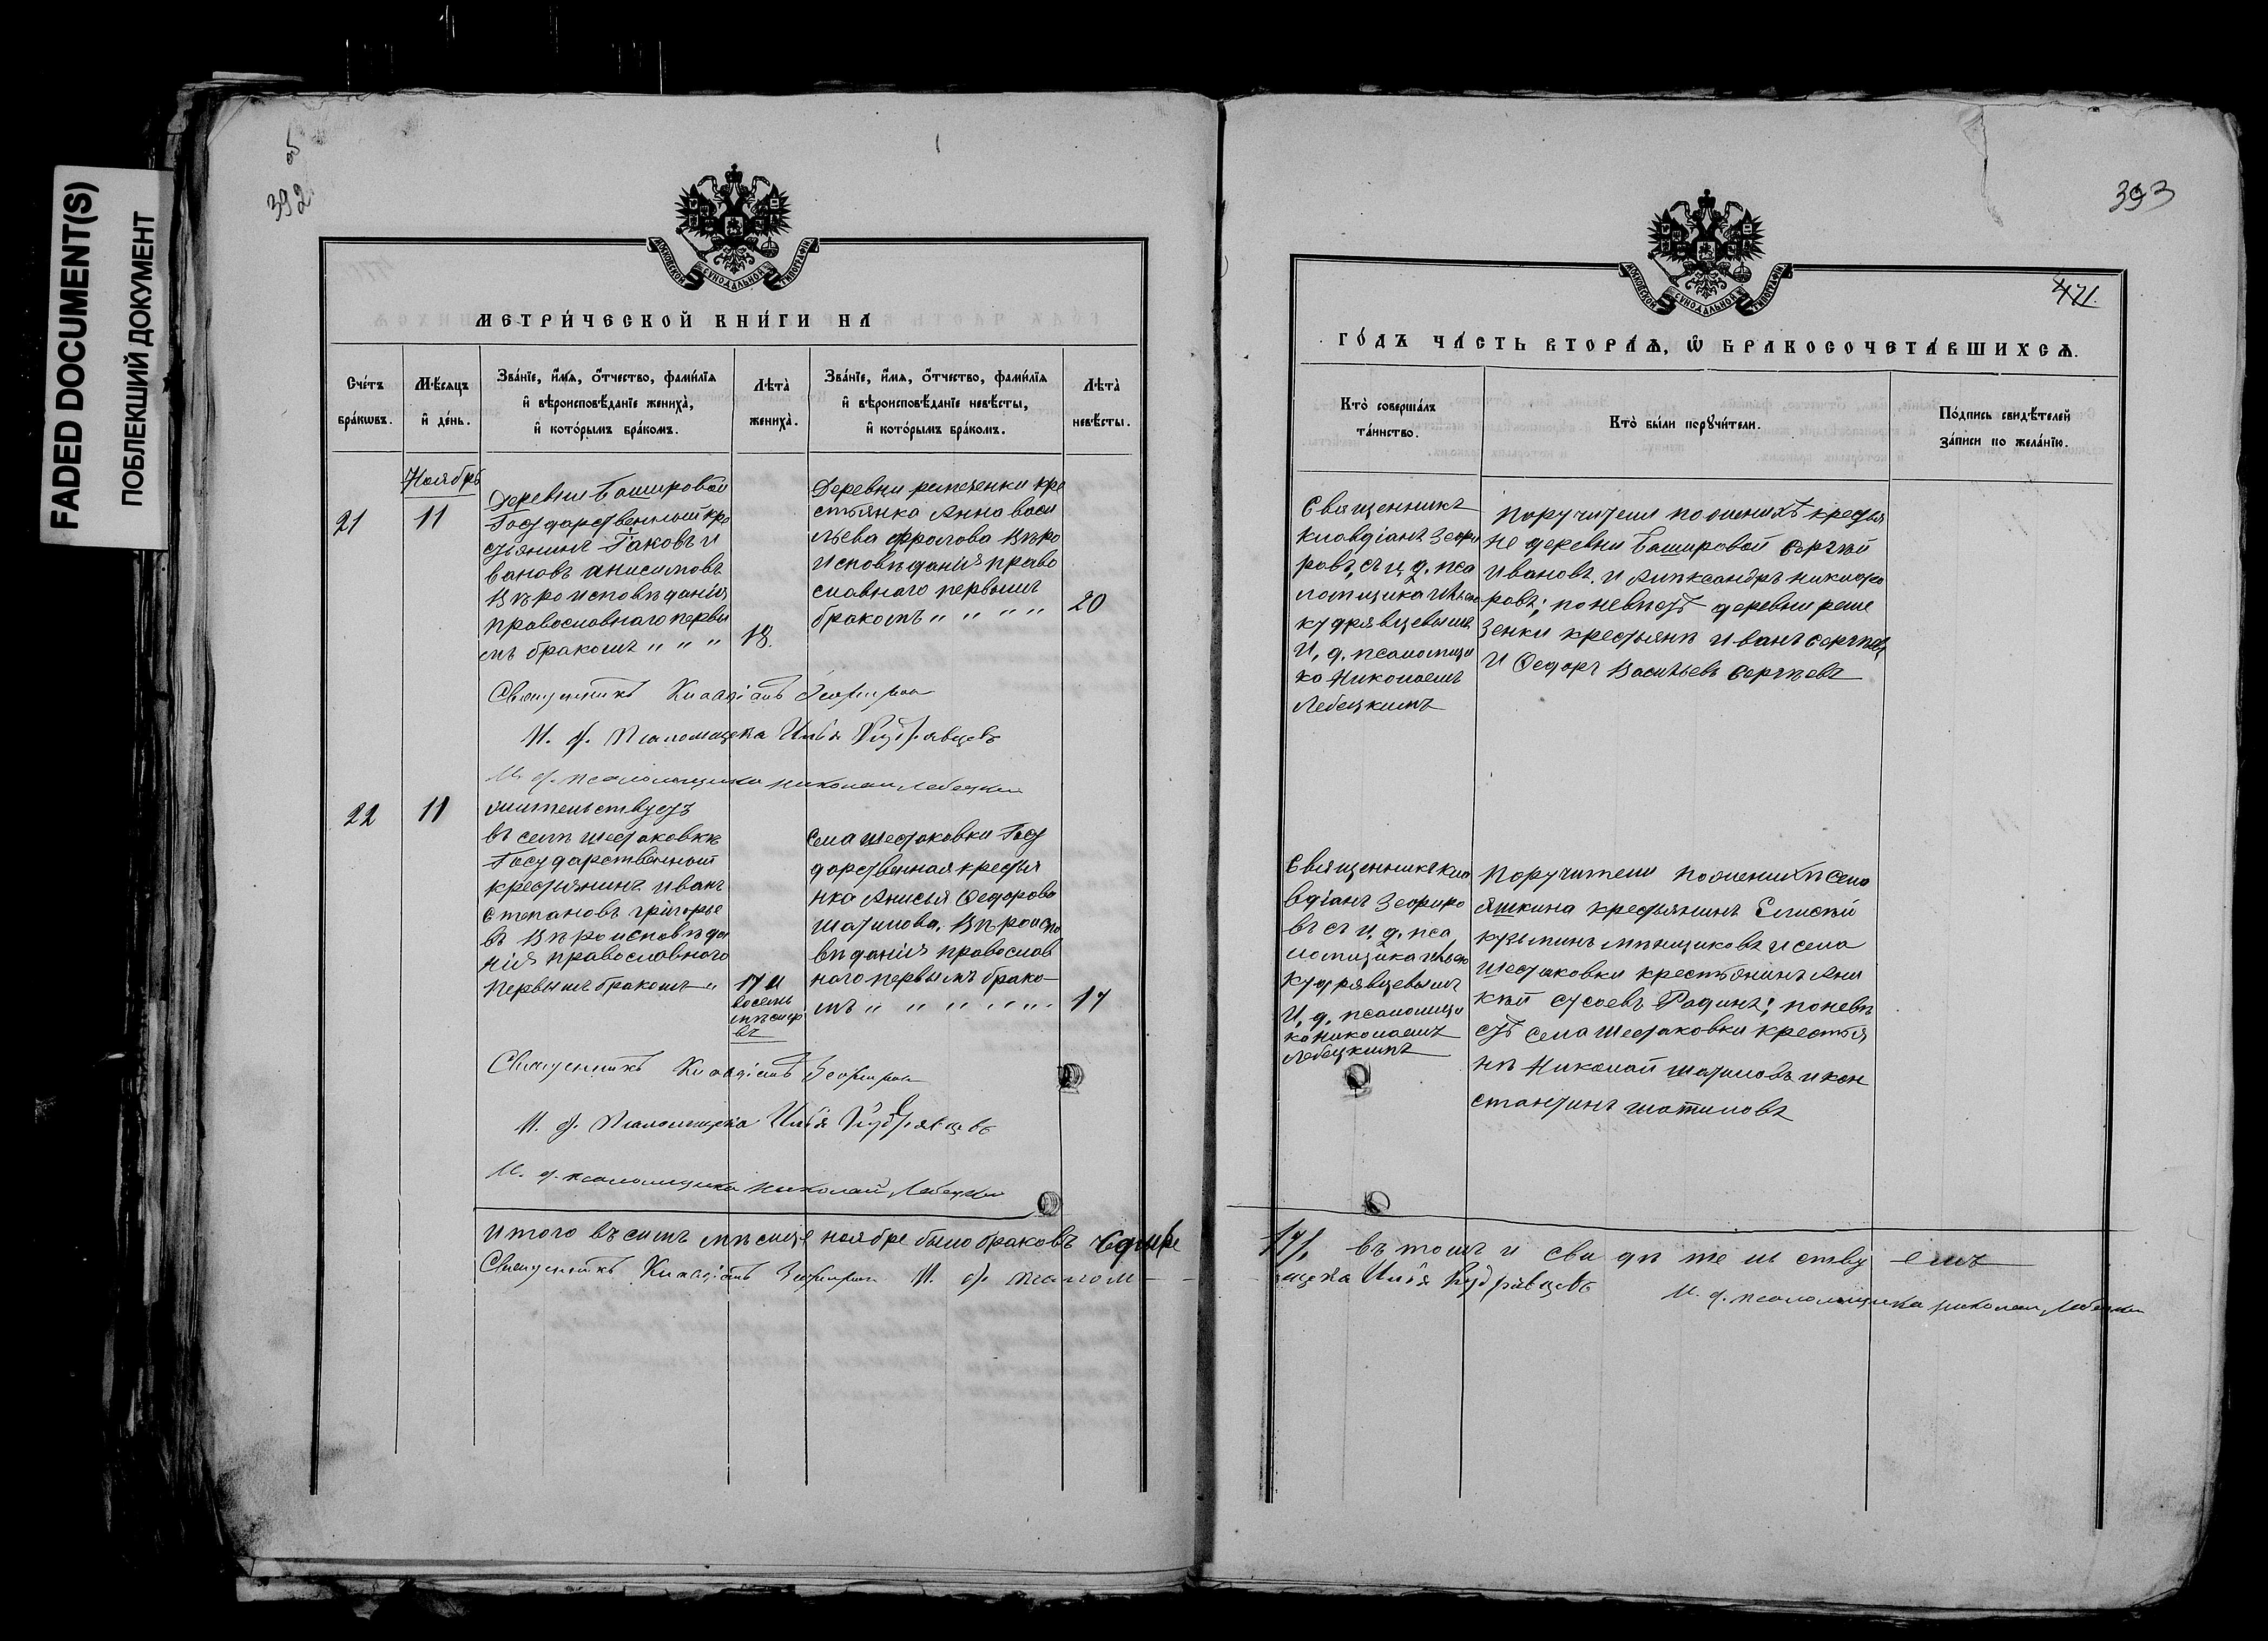 FADED DOCUMENT(S)
ПОБЛЕКШИЙ ДОКУМЕНТ
392
МОСКОВСКОЙ СѴНОДАЛЬНОЙ ТИПОГРАФІИ
МЕТРИ́ЧЕСКОЙ КНИ́ГИ НА
Сче́тъ бра́кѡвъ.
Мѣ́сяцъ и҆ де́нь.
Зва́нїе, и҆́мя, о҆́тчество, фами́лїя и҆ вѣроисповѣ́данїе жениха̀, и҆ кото́рымъ бра́комъ.
Лѣта̀ жениха̀.
Зва́нїе, и҆́мя, о҆́тчество, фами́лїя и҆ вѣроисповѣ́данїе невѣ́сты, и҆ кото́рымъ бра́комъ.
Лѣта̀ невѣ́сты.
Ноябрь
21
11
Деревни Башировой
Государственный кре
стьянинъ Іаковъ И
вановъ Анисимовъ
Вѣроисповѣданія
православнаго первы
мъ бракомъ " " "
18.
Деревни репьенки кре
стьянка Анна Васи
льева Фролова Вѣро
Исповѣданія право
славнаго первымъ
бракомъ " " " "
20
Священникъ Клавдіанъ Зефировъ
И. д. Псаломщика Илья Кудрявцевъ
И. д. псаломщика Николай Лебецкій
22
11
жительствуетъ
въ селѣ Шестаковкѣ
Государственный
крестьянинъ Иванъ
Степановъ Григорье
въ Вѣроисповѣда
нія православнаго
первымъ бракомъ "
17 и
восемь
мѣсяцо
въ
Села Шестаковки Госу
дарственная крестья
нка Анисья Федорова
Шатилова, Вѣроиспо
вѣданія православ
наго первымъ брако-
мъ " " " " " "
17
Священникъ Клавдіанъ Зефировъ
И. д. Псаломщика Илья Кудрявцевъ
И. д. псаломщика Николай Лебецкій
Итого въ симъ мѣсяцѣ ноябре было браковъ четыре
Священникъ Клавдіанъ Зефировъ И. д. псалом-
393
471.
МОСКОВСКОЙ СѴНОДАЛЬНОЙ ТИПОГРАФІИ
ГО́ДЪ ЧА́СТЬ ВТОРА́Ѧ, Ѽ БРАКОСОЧЕТА́ВШИХСѦ.
Кто̀ соверша́лъ та́инство.
Кто̀ бы́ли порꙋчи́тели.
По́дпись свидѣ́телей за́писи по жела́нїю.
Священникъ
Клавдіанъ Зефи
ровъ, съ и. д. пса
ломщика Ильею
Кудрявцевымъ
И, д. псаломщи
ка Николаемъ
Лебецкимъ
Поручители по женихѣ крестья
не деревни Башировой Сергѣй
Ивановъ, и Александръ Никифо
ровъ; по невѣстѣ деревни репе
зенки крестьянѣ Иванъ Сергѣевъ
И Федоръ Васильевъ Сергѣевъ
Священникъ Кла
вдіанъ Зефиро
въ съ и. д. пса
ломщика Ильею
Кудрявцевымъ
И, д. псаломщи
ка Николаемъ
Лебецкимъ
Поручители по женихѣ села
Яшкина крестьянинъ Елисѣй
Кузьминъ Мѣнщиковъ и села
Шестаковки крестьянинъ Ани
кѣй Сусоевъ Радинъ; по невѣ
стѣ села Шестаковки крестья
нѣ Николай Шатиловъ и Кон
стантинъ Шатиловъ
/4/, въ томъ и свидѣтельствуемъ
щика Илья Кудрявцевъ
И. д. псаломщика Николай Лебецкій